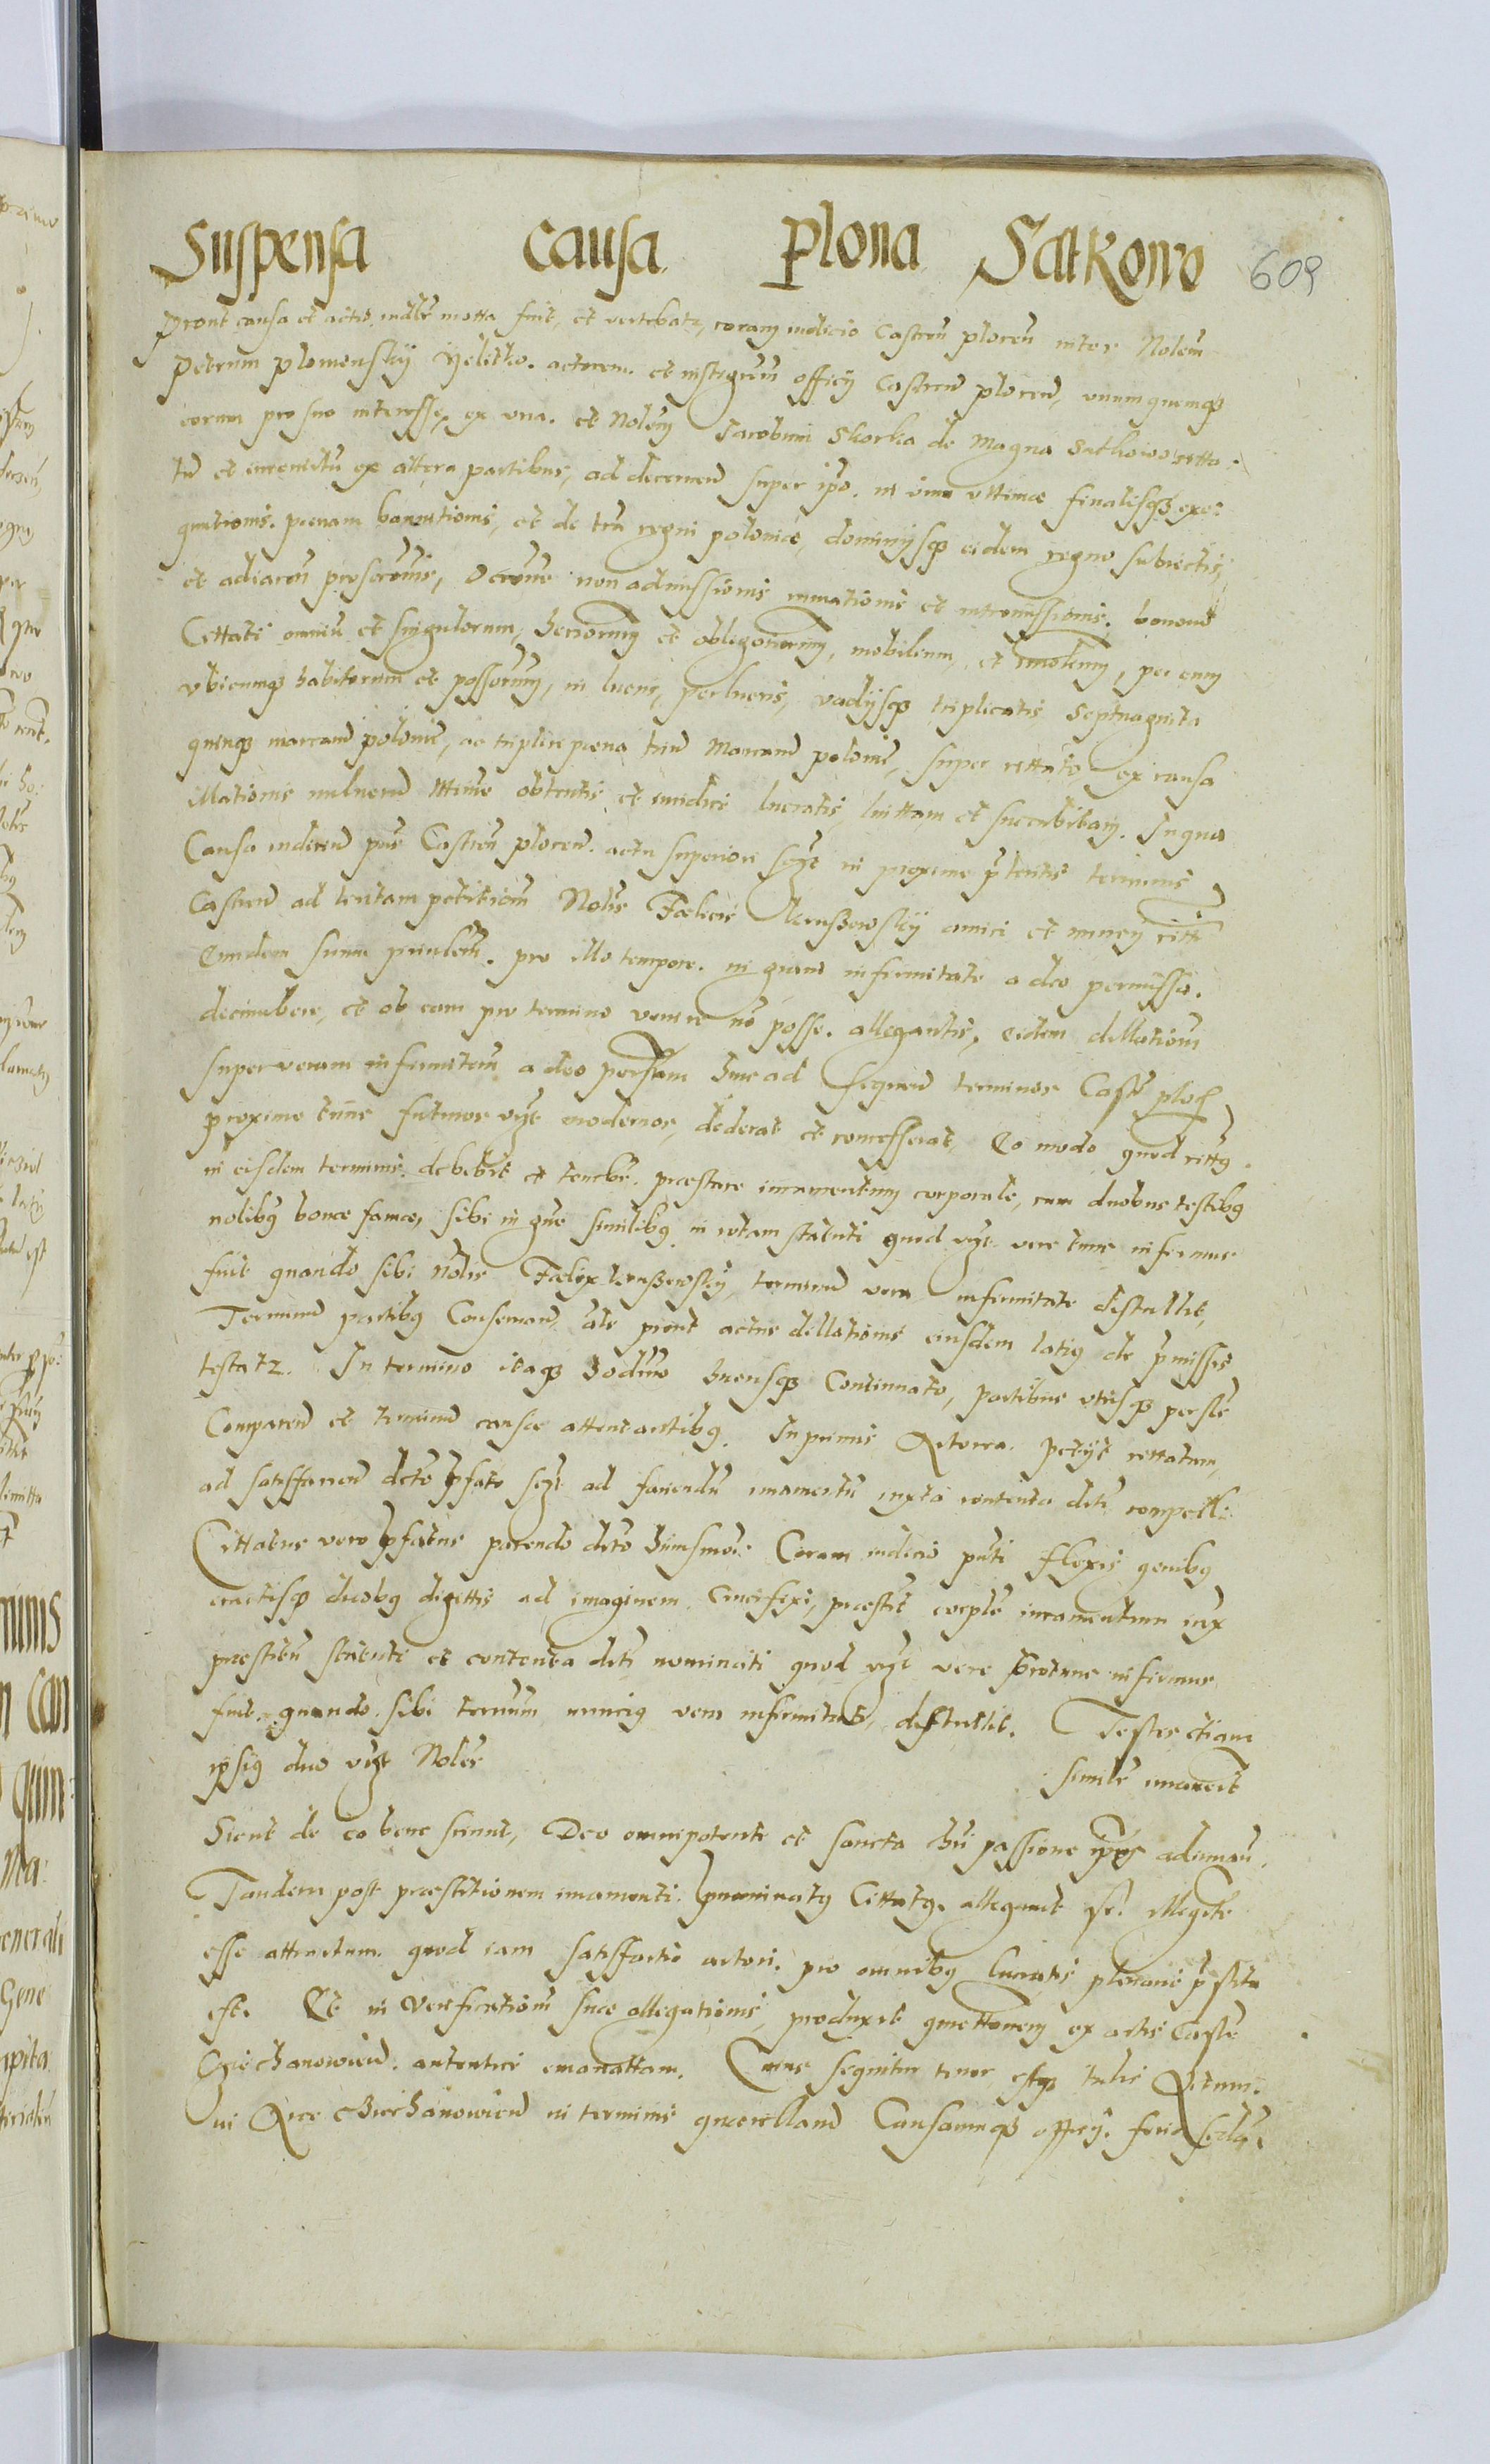 Suspensa causa Plona Satkowo 609
Prout causa et actio inter motta fuit, et vertebatr, coram iudicio Castren plocen inter Nolem
Petrum plomensky Yelitko. actorem. et instigrem officy Castren plocen, unumquemqz
eorum pro suo interesse, ex una. et Nolem Jacobum Skorka de Magna Satkowo citta:
tu et ex altera partibus, ad decernen super ipo. in vim ultimae finalisqz exe:
qutionis. poenam bannitionis, et de tris regni polonice, dominysqz eidem regno subiectis,
et adiacen proscronis, non admissionis et intromissionis. bonorum
Cittati omniu et singulorum, et obligatoriorum, mobilium, et imobilium, per eum
ubicumqz habitorum et possorum, in lucris, perlucris, vadysqz triplicatis Septuaginta
quinqz marcarum polonic, ac triplici poena trium Marcarum polonic, super cittato ex causa
illationis vulnerum obtentis et iuridice lucratis, luittam et succubitam. In qua
Causa iudicium pns Castren plocen. actu superiori scyt in proxime pteritis terminis
Castren ad petitionem Nolis Foelicis amici et nuncy citti
eundem suum prinlem. pro illo tempore. in gravi infirmitate a deo permissa.
decumbere, et ob eam pro termino venire no posse. allegantis, eidem dillationem
super veram infirmitem a deo persam huc ad sequen terminos Castr ploc
proxime tunc futuros vyt modernos, dederat et concesserat, Eo modo quod cittus
in eisdem terminis. debebit et tenebr. praestare iuramentum corporale, cum duobus testibus
nolibus bonae famae, sibi in gne similibus in rotam statuti quod vyt vere tunc infirmus
fuit quando sibi nolis Foelix terminum vera infirmitate distullit,
Terminum partibus Conservan. ats prout actus dillationis eiusdem latius de pmissis
testatr. In termino itaqz hodierno hucusqz Continuato, partibus utrisqz perste
Comparen et terminum causae attentantibus. Inprimis Actorea. petyt cittatum
ad satisfacien dcto pfato scyt ad faciendu iuramentu iuxta contenta dcti compelli.
Cittatus vero pfatus parendo dcto huiusmoi. Coram iudicio pnti flexis genibus
erectisqz duobus digittis ad imaginem Crucifixi, praestit corple iuramentum iux
praescriptu statuti et contenta dcti nominati quod vyt vere protunc infirmus
fuit. quando. sibi terminum nuncius vera infirmitate, distullit. Testes etiam
ipsius duo vyt Noles similr iuraverit
Sicut de eo bene sciunt, Deo omnipotente et sancta hui passione ipos adiuvan.
Tandem post praestitionem iuramenti. pnominatus Cittatus. allegavit se illegitte
esse attractum. quod iam satisfactio actori. pro omnibus lucratis plenarie pstita
est. Et in verificationem suae allegationis, produxit quietationem ex actis Castr
Czechanowien. autentice emanattam. Cuius sequitur tenor estqz talis Actum.
in Arce Cziechanowien in terminis querellarum Causarumqz officy. feria